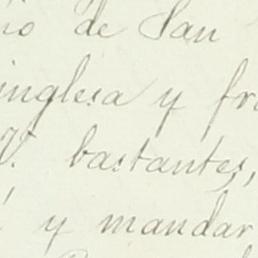 de San
inglesa y
V. bastantes,
y mandar